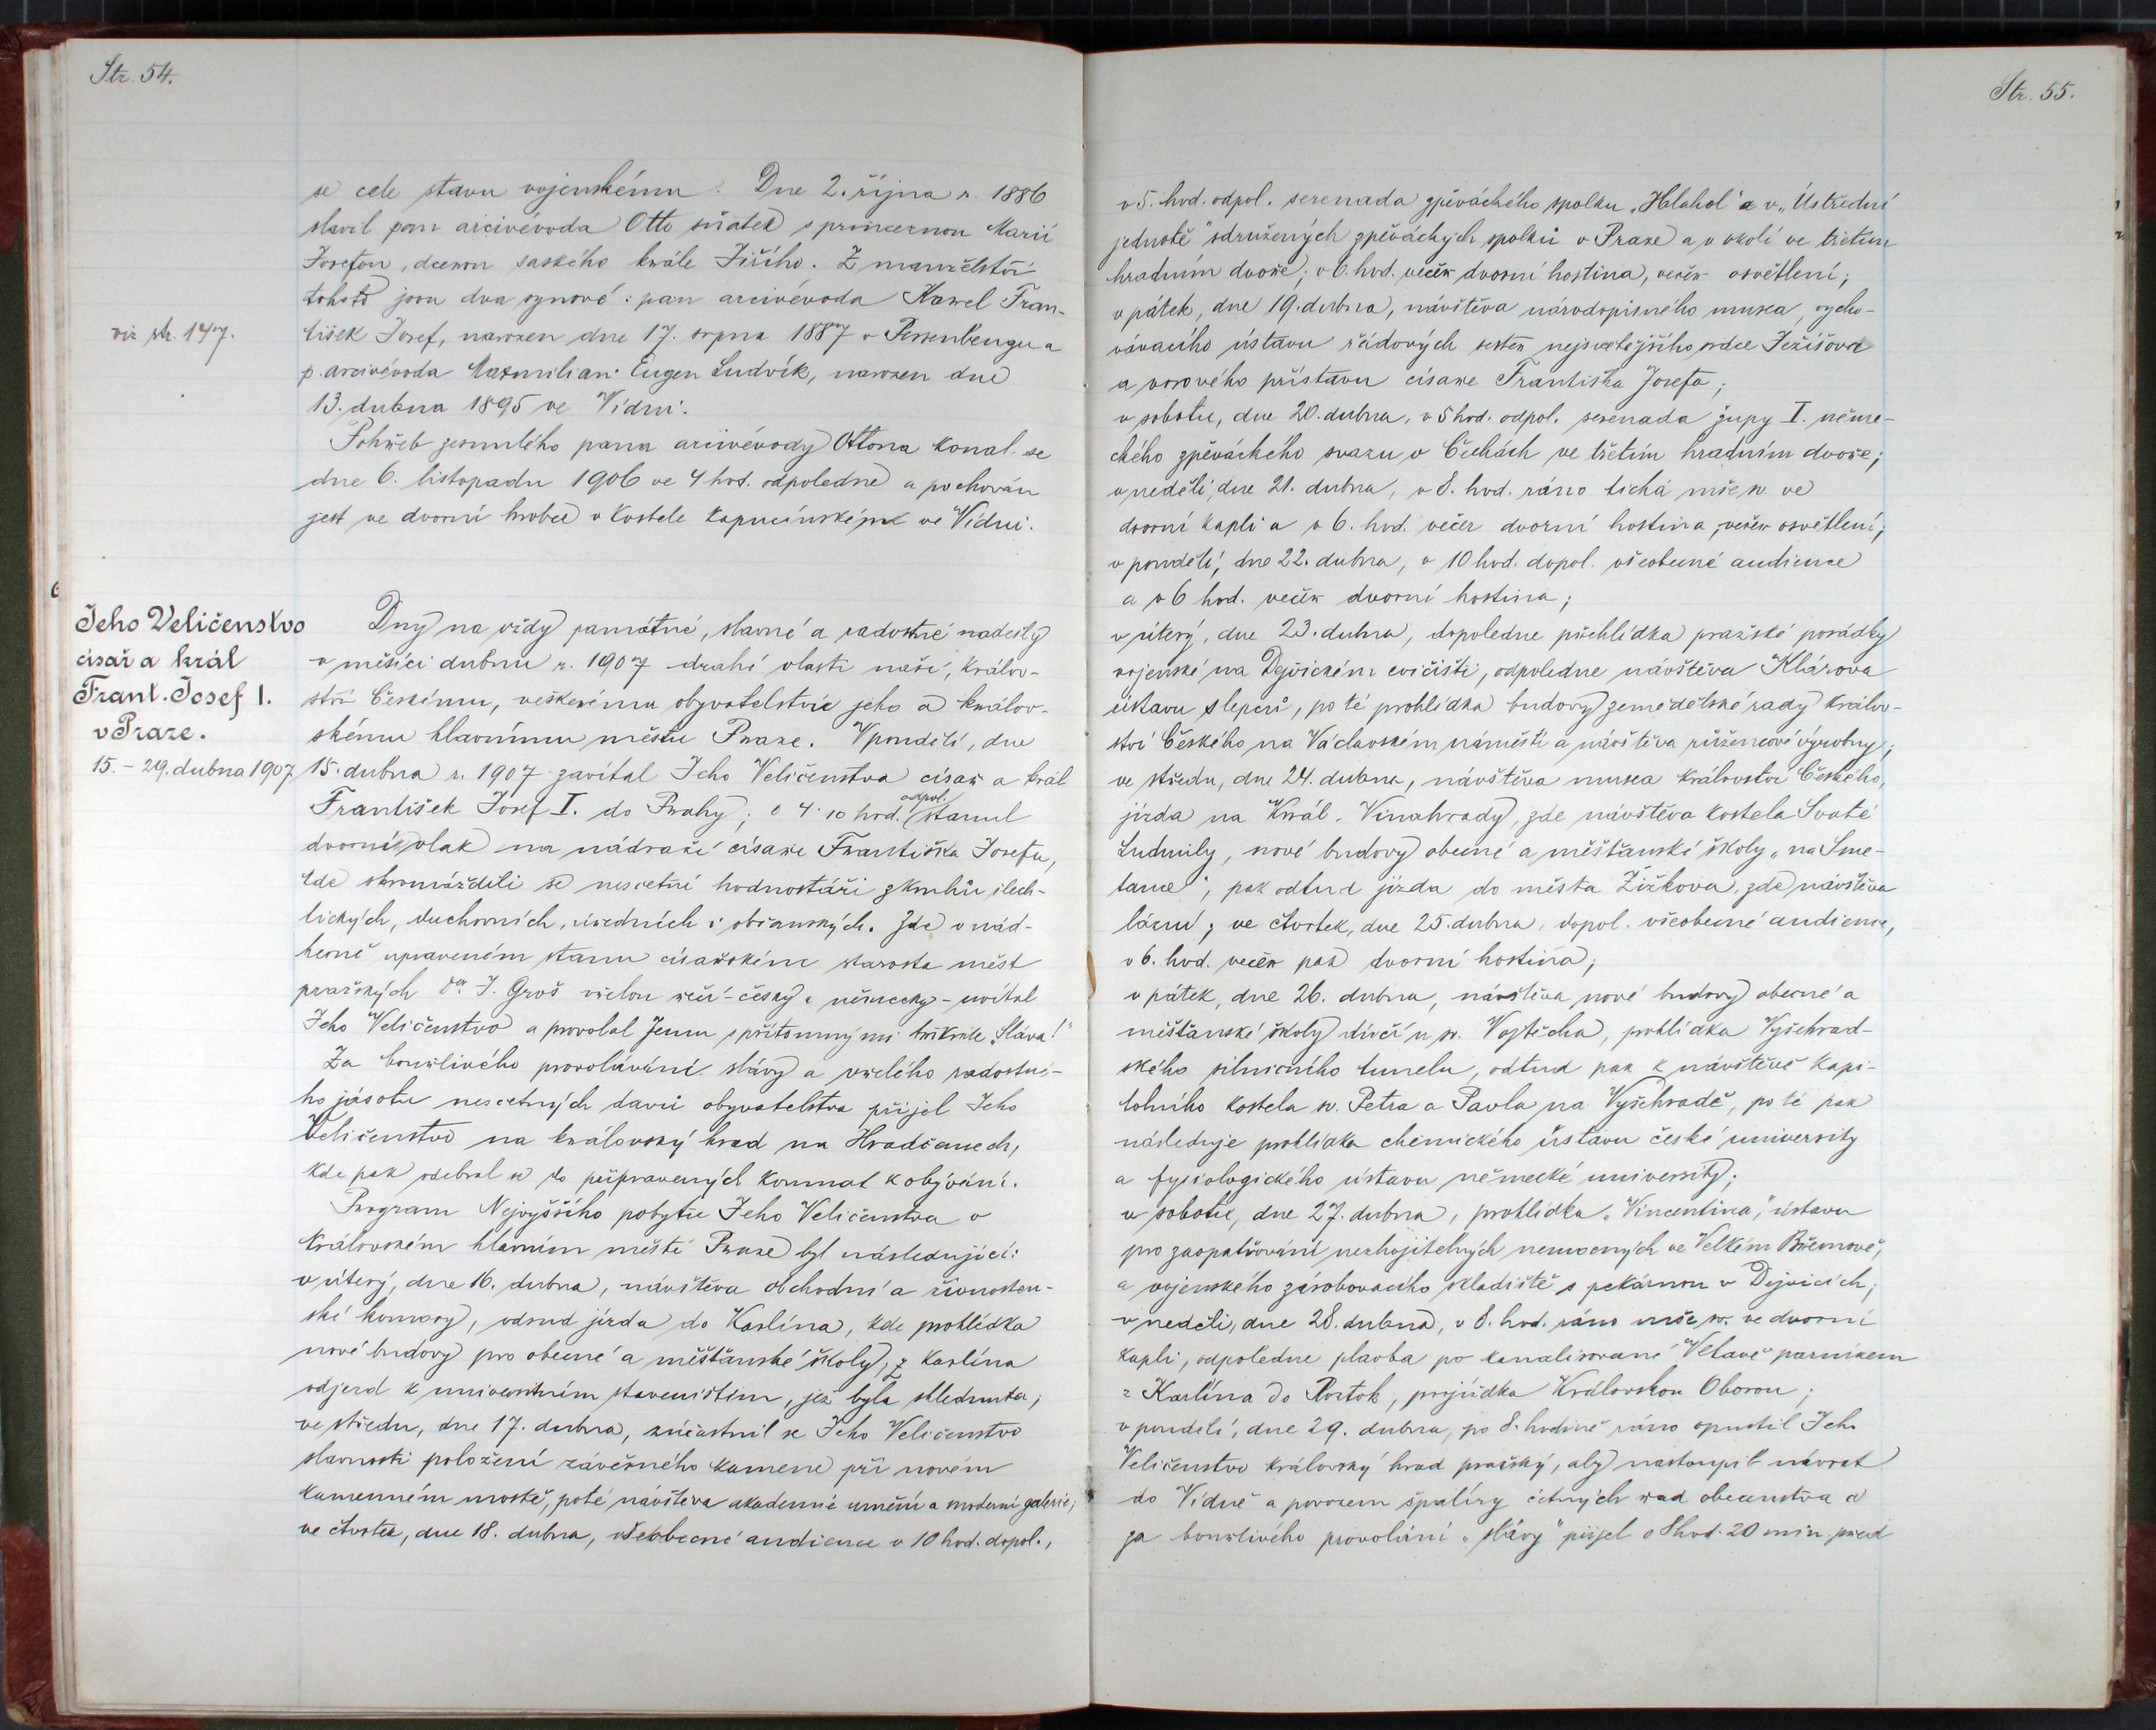 Str. 54.
se cele stavu vojenskému. Dne 2. října r. 1886
slavil pan arcivévoda Otto sňatek s princeznou Marií
Josefou, dcerou saského krále Jiřího. Z manželství
tohoto jsou dva synové: pan arcivévoda Karel Fran-
viz str. 147.
tišek Josef, narozen dne 17. srpna 1887 v Persenbeugu a
p. arcivévoda Maxmilian Eugen Ludvík, narozen dne
13. dubna 1895 ve Vídni.
Pohřeb zesnulého pana arcivévody Ottona konal se
dne 6. listopadu 1906 ve 4 hod. odpoledne a pochován
jest ve dvorní hrobce v kostele kapucínském ve Vídni.
Jeho Veličenstvo
císař a král
Frant. Josef I.
v Praze.
15. - 29. dubna 1907
Dny na vždy památné, slavné a radostné nadešly
v měsíci dubnu r. 1907 drahé vlasti naší, králov-
ství Českému, veškerému obyvatelstvu jeho a králov-
skému hlavnímu městu Praze. V pondělí, dne
15. dubna r. 1907 zavítal Jeho Veličenstvo císař a král
František Josef I. do Prahy; o 4·10 hod. odpol. stanul
dvorní vlak na nádraží císaře Františka Josefa,
kde shromáždili se nesčetní hodnostáři z kruhů šlech-
tických, duchovních, úředních i občanských. Zde v nád-
herně upraveném stanu císařském starosta měst
pražských Dr. J. Groš vřelou řečí - česky a německy - uvítal
Jeho Veličenstvo a provolal Jemu s přítomnými třikráte „Sláva!"
Za bouřlivého provolávání slávy a vřelého radostné-
ho jásotu nesčetných davů obyvatelstva přijel Jeho
Veličenstvo na královský hrad na Hradčanech,
kde pak odebral se do připravených komnat k obývání.
Program Nejvyššího pobytu Jeho Veličenstva v
královském hlavním městě Praze byl následující:
v úterý, dne 16. dubna, návštěva obchodní a živnosten-
ské komory, odsud jízda do Karlína, kde prohlídka
nové budovy pro obecné a měšťanské školy, z Karlína
odjezd k universitním staveništím, jež byla shlédnuta;
ve středu, dne 17. dubna, zúčastnil se Jeho Veličenstvo
slavnosti položení závěrného kamene při novém
kamenném mostě, poté návštěva akademie umění a moderní galerie;
ve čtvrtek, dne 18. dubna, všeobecné audience v 10 hod. dopol.,
Str. 55.
v 5. hod. odpol. serenada zpěváckého spolku „Hlahol" a v „Ústřední
jednotě" sdružených zpěváckých spolků v Praze a v okolí ve třetím
hradním dvoře; v 6. hod. večer dvorní hostina, večer osvětlení;
v pátek, dne 19. dubna, návštěva národopisného musea, vycho-
vávacího ústavu řádových sester nejsvětějšího srdce Ježíšova
a vorového přístavu císaře Františka Josefa;
v sobotu, dne 20. dubna, v 5 hod. odpol. serenada župy I. něme-
ckého zpěváckého svazu v Čechách ve třetím hradním dvoře;
v neděli, dne 21. dubna, v 8. hod. ráno tichá mše sv. ve
dvorní kapli a v 6. hod. večer dvorní hostina, večer osvětlení;
v pondělí, dne 22. dubna, v 10 hod. dopol. všeobecné audience
a v 6 hod. večer dvorní hostina;
v úterý, dne 23. dubna, dopoledne přehlídka pražské posádky
vojenské na Dejvickém cvičišti, odpoledne návštěva Klárova
ústavu slepců, po té prohlídka budovy zemědělské rady králov-
ství Českého na Václavském náměstí a návštěva růžencové výrobny;
ve středu, dne 24. dubna, návštěva musea království Českého,
jízda na Král. Vinohrady, zde návštěva kostela Svaté
Ludmily, nové budovy obecné a měšťanské školy „na Sme-
tance", pak odtud jízda do města Žižkova, zde návštěva
lázní; ve čtvrtek, dne 25. dubna, dopol. všeobecné audience,
v 6. hod. večer pak dvorní hostina;
v pátek, dne 26. dubna, návštěva nové budovy obecné a
měšťanské školy dívčí u sv. Vojtěcha, prohlídka Vyšehrad-
ského silničního tunelu, odtud pak k návštěvě kapi-
tolního kostela sv. Petra a Pavla na Vyšehradě, po té pak
následuje prohlídka chemického ústavu české university
a fysiologického ústavu německé university;
v sobotu, dne 27. dubna, prohlídka „Vincentina," ústavu
pro zaopatřování nezhojitelných nemocných ve Velkém Břevnově,
a vojenského zásobovacího skladiště s pekárnou v Dejvicích;
v neděli, dne 28. dubna, v 8. hod. ráno mše sv. ve dvorní
kapli, odpoledne plavba po kanalisované Vltavě parníkem
z Karlína do Roztok, projížďka Královskou Oborou;
v pondělí, dne 29. dubna, po 8. hodině ráno opustil Jeho
Veličenstvo královský hrad pražský, aby nastoupil návrat
do Vídně a povozem špalíry četných řad obecenstva a
za bouřlivého provolání „slávy" přijel o 8 hod. 20 min. před